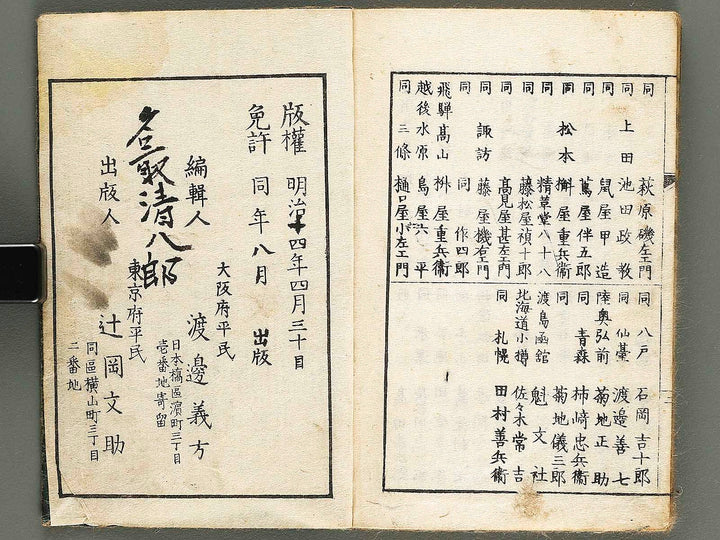 同 萩原磯左エ門
同 上田 池田政教
同 鼠屋甲造
同 萬屋伴五郎
同 松本 槲屋重兵衛
同 精草堂八十八
同 藤松屋禎十郎
同 高見屋甚左エ門
同 諏訪 藤屋機右エ門
同 同 作四郎
飛騨高山 桝屋重兵衛
越後水原 島屋六平
同 三條 樋口屋小左エ門
同 八戸 石岡吉十郎
同 仙臺 渡邉善七
陸奥弘前 菊地正助
同 青森 柿﨑忠兵衛
同 菊地儀三郎
渡島函舘 魁文社
北海道小樽 佐々木常吉
同 札幌 田村善兵衛
版權 明治十四年四月三十日
免許 同年八月 出版
大阪府平民
編輯人 渡邊義方
日本橋區濵町三丁目
壱番地寄留
名取清八郎
東京府平民
出版人 辻岡文助
同區横山町三丁目
二番地